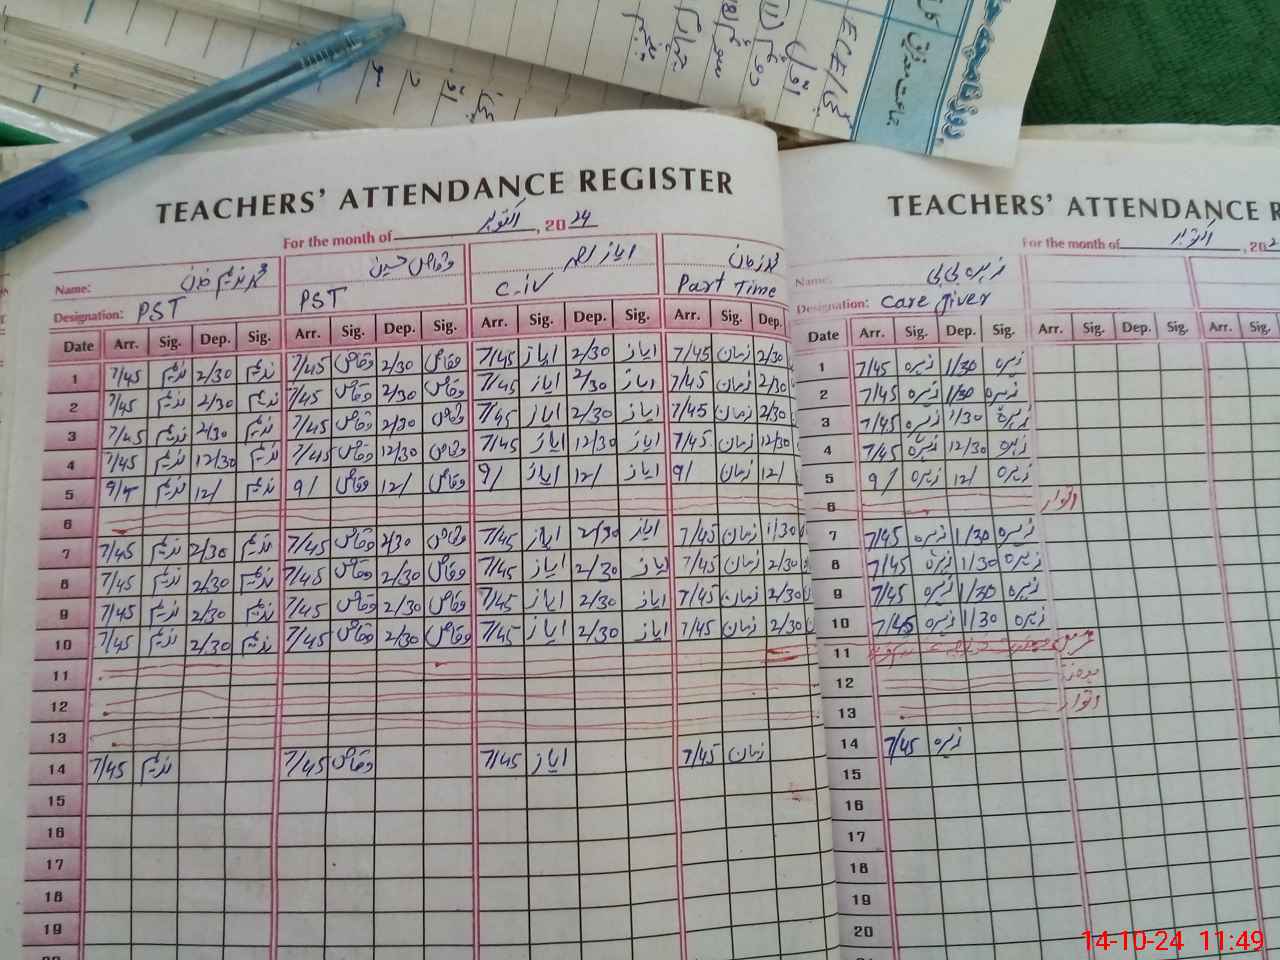 ECE/کچی
اوّل
دوئم (11)
سوئم
چہارم
پنجم
جماعت
TEACHERS' ATTENDANCE REGISTER
For the month of اکتوبر, 2024
Name: محمد ندیم خان وقاص حسین ایاز احمد محمد زمان
Designation: PST PST C-iv Part Time
Date Arr. Sig. Dep. Sig. Arr. Sig. Dep. Sig. Arr. Sig. Dep. Sig. Arr. Sig. Dep.
1 7/45 ندیم 2/30 ندیم 7/45 وقاص 2/30 وقاص 7/45 ایاز 2/30 ایاز 7/45 زمان 2/30
2 7/45 ندیم 2/30 ندیم 7/45 وقاص 2/30 وقاص 7/45 ایاز 2/30 ایاز 7/45 زمان 2/30
3 7/45 ندیم 2/30 ندیم 7/45 وقاص 2/30 وقاص 7/45 ایاز 2/30 ایاز 7/45 زمان 2/30
4 7/45 ندیم 12/30 ندیم 7/45 وقاص 12/30 وقاص 7/45 ایاز 12/30 ایاز 7/45 زمان 12/30
5 ندیم 12/ ندیم 9/ وقاص 12/ وقاص 9/ ایاز 12/ ایاز 9/ زمان 12/
6
7 7/45 ندیم 2/30 ندیم 7/45 وقاص 2/30 وقاص 7/45 ایاز 2/30 ایاز 7/45 زمان 1/30
8 7/45 ندیم 2/30 ندیم 7/45 وقاص 2/30 وقاص 7/45 ایاز 2/30 ایاز 7/45 زمان 2/30
9 7/45 ندیم 2/30 ندیم 7/45 وقاص 2/30 وقاص 7/45 ایاز 2/30 ایاز 7/45 زمان 2/30
10 7/45 ندیم 2/30 ندیم 7/45 وقاص 2/30 وقاص 7/45 ایاز 2/30 ایاز 7/45 زمان 2/30
11
12
13
14 7/45 ندیم 7/45 وقاص 7/45 ایاز 7/45 زمان
15
16
17
18
19
TEACHERS' ATTENDANCE R
For the month of اکتوبر, 202
Name: زہرہ بی بی
Designation: Care giver
Date Arr. Sig. Dep. Sig. Arr. Sig. Dep. Sig. Arr. Sig.
1 7/45 زہرہ 1/30 زہرہ
2 7/45 زہرہ 1/30 زہرہ
3 7/45 زہرہ 1/30 زہرہ
4 7/45 زہرہ 12/30 زہرہ
5 9/ زہرہ 12/ زہرہ
6 اتوار
7 7/45 زہرہ 1/30 زہرہ
8 7/45 زہرہ 1/30 زہرہ
9 7/45 زہرہ 1/30 زہرہ
10 7/45 زہرہ 1/30 زہرہ
11
12
13 اتوار
14 7/45 زہرہ
15
16
17
18
19
20
14-10-24 11:49